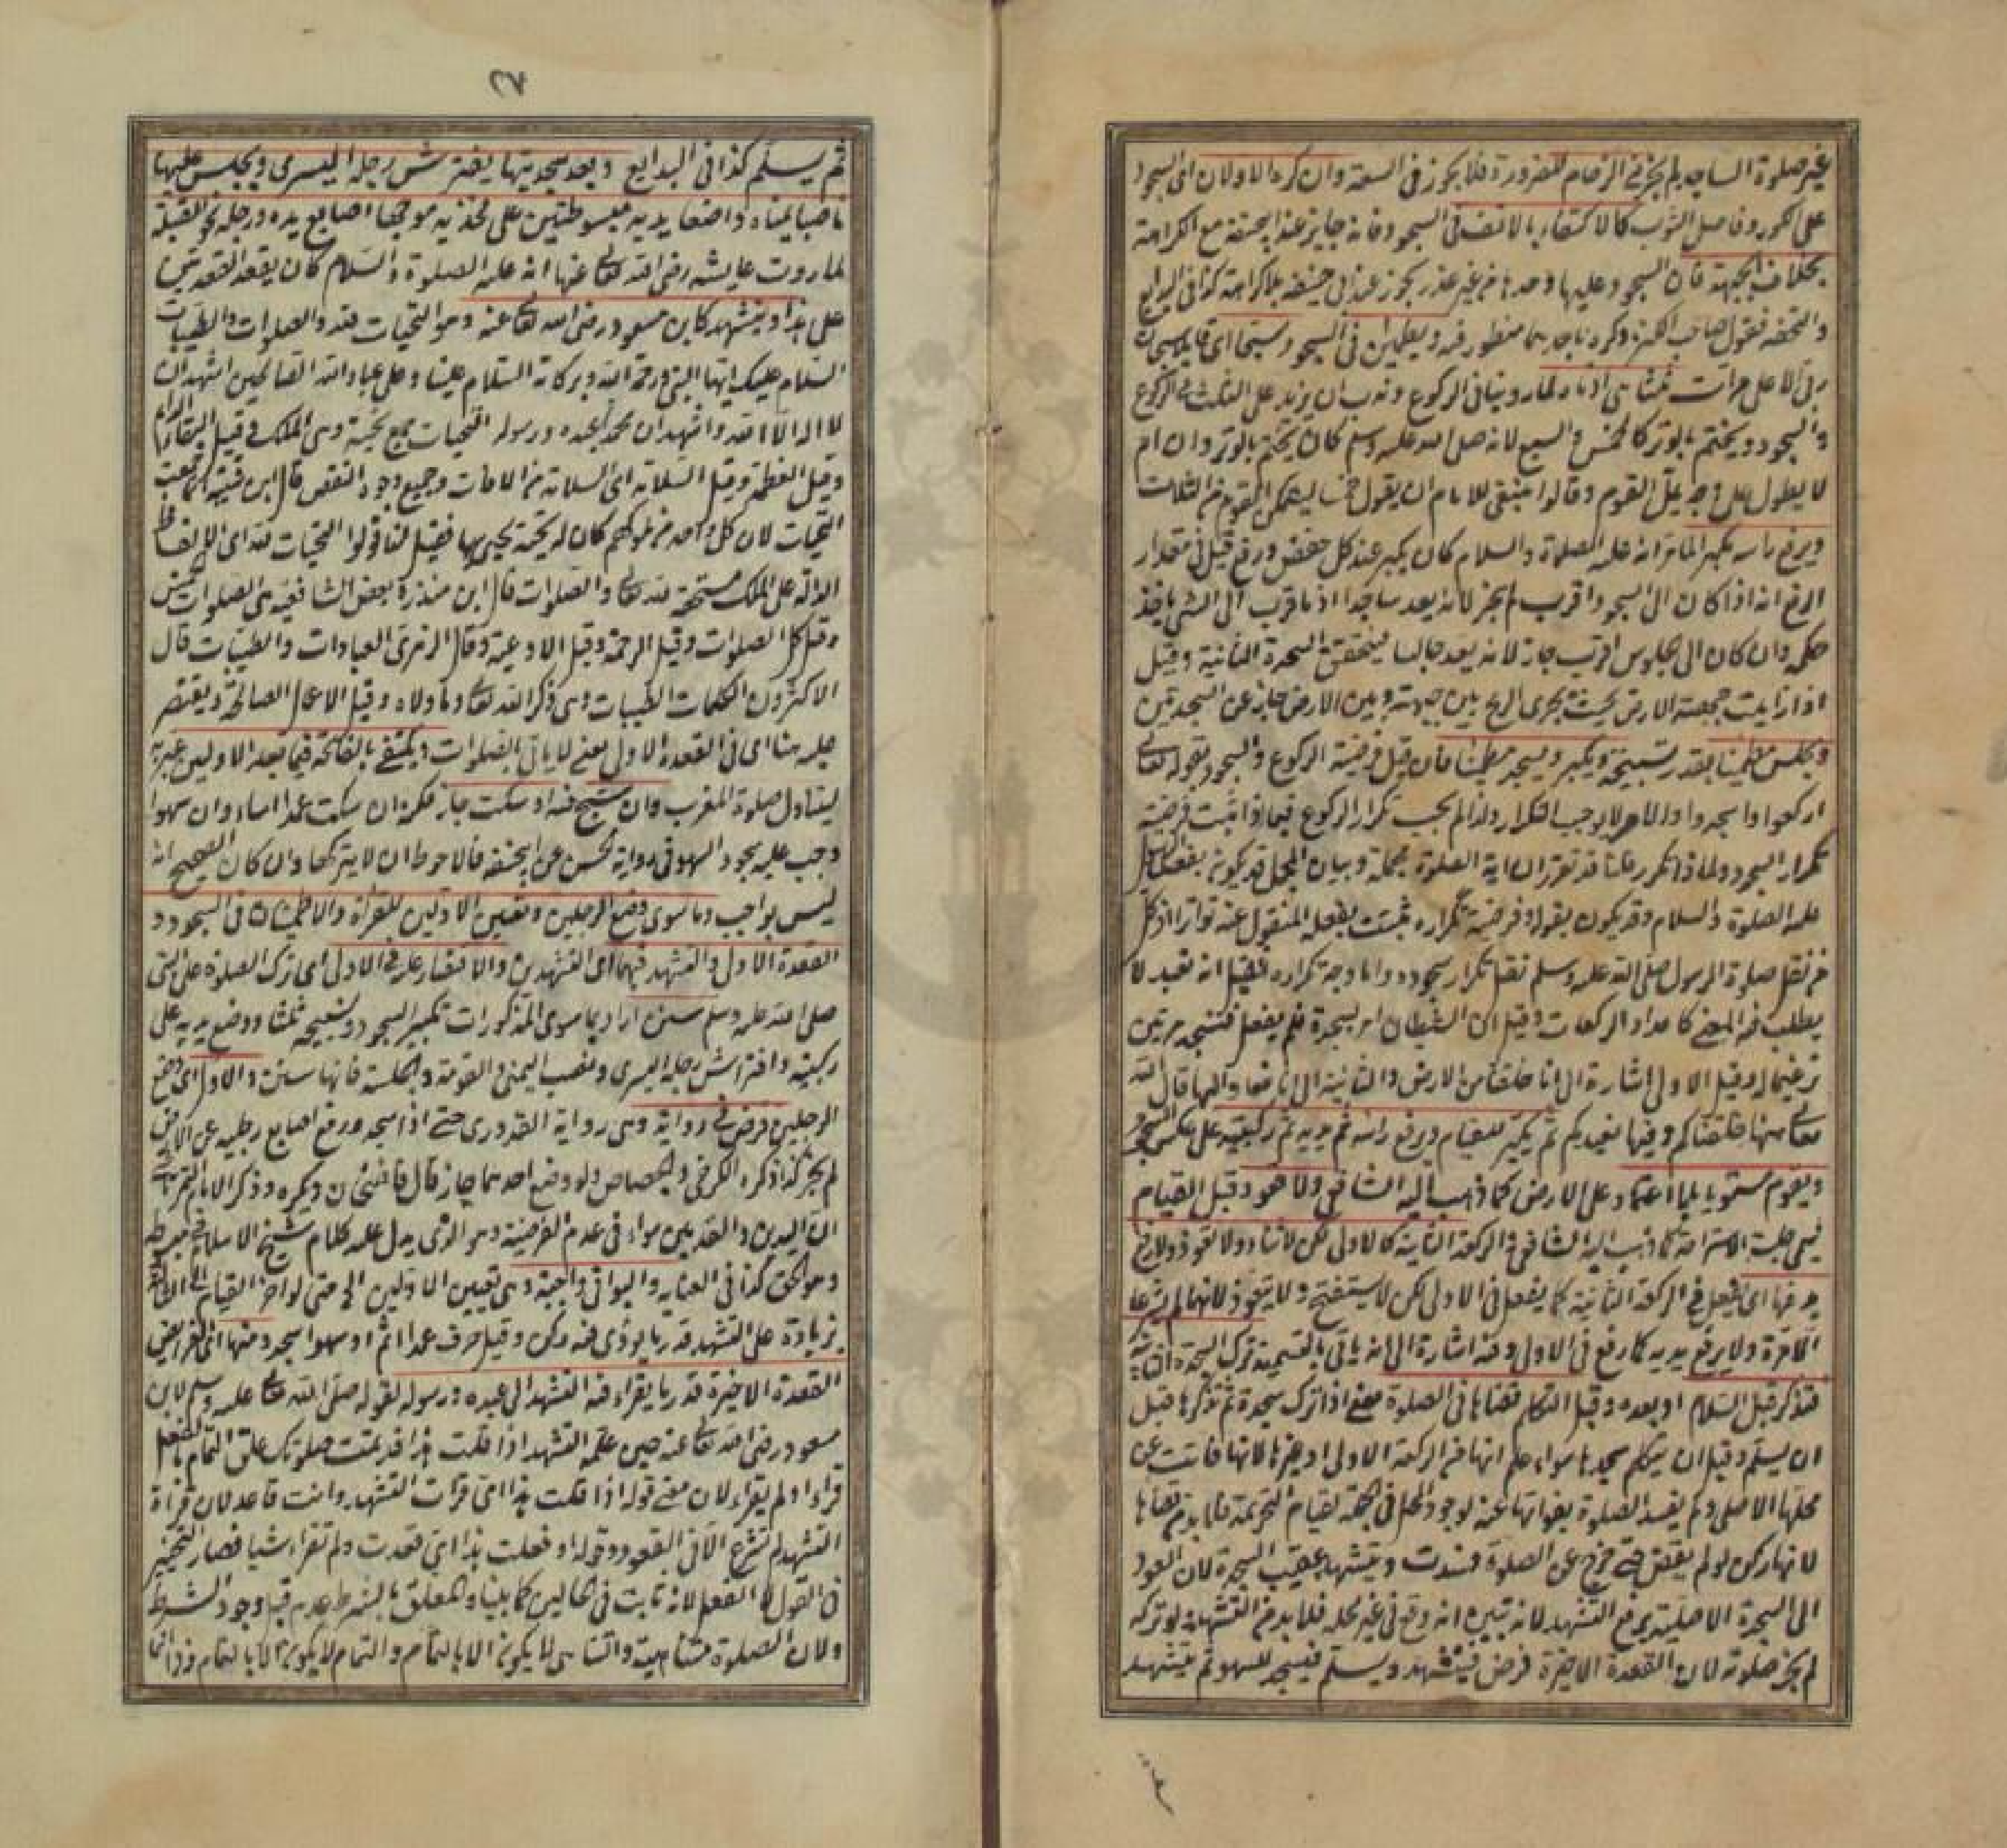 غير صلوة الساجد لم يجز في الزحام للضرورة فلا يجوز في السعة وان كره الاولان اى السجود
على الكور وفاضل الثوب كالاكتفاء بالانف في السجود فانه جايز عند ابيحنيفة مع الكراهة
بخلاف الجبهة فان السجود عليها وحدها من غير عذر يجوز عند ابي حنيفة بلا كراهة كذا في البدايع
والتحفة فقول صاحب الكنز وكره باحدهما منظور فيه ويطمئن في السجود مسبحا اى قايلا سبحان
ربى الاعلى مرات ثلثا هى ادناه لما روينا في الركوع وندب ان يزيد على الثلث في الركوع
والسجود ويختم بالوتر كالخمس والسبع لانه صلى الله عليه وسلم كان يختم بالوتر وان ام
لا يطول على وجه يمل القوم وقالوا ينبغى للامام ان يقول خمسا ليتمكن القوم من الثلاث
ويرفع راسه مكبرا لما مر انه عليه الصلاة والسلام كان يكبر عند كل خفض ورفع قيل في مقدار
الرفع انه اذا كان الى السجود اقرب لم يجز لانه يعد ساجدا اذ ما قرب الى الشئ ياخذ
حكمه وان كان الى الجلوس اقرب جاز لانه يعد جالسا فيتحقق السجدة الثانية وقيل
اذا زايلت جبهته الارض بحيث يجرى الريح بين جبهته وبين الارض جاز عن السجدتين
ويجلس مطمئنا بقدر تسبيحة ويكبر ويسجد مطمئنا فان قيل فرضية الركوع والسجود بقوله تعالى
اركعوا واسجدوا والامر لا يوجب التكرار ولذا لم يجب تكرار الركوع فبماذا ثبت فرضية
تكرار السجود ولماذا تكرر قلنا قد تقرر ان اية الصلوة مجملة وبيان المجمل قد يكون بفعل الرسول
عليه الصلوة والسلام وقد يكون بقوله وفرضية تكراره ثبتت بفعله المنقول عنه تواترا اذ كل
من نقل صلوة الرسول صلى الله عليه وسلم نقل تكرار سجوده واما وجه تكراره فقيل انه تعبد لا
يطلب فيه المعنى كاعداد الركعات وقيل ان الشيطان امر بسجدة فلم يفعل فنسجد مرتين
ترغيما له وقيل الاولى اشارة الى انا خلقنا من الارض والثانية الى انا نعاد اليها قال الله
تعالى منها خلقناكم وفيها نعيدكم ثم يكبر للقيام ويرفع راسه ثم يديه ثم ركبتيه على عكس السجود
ويقوم مستويا بلا اعتماد على الارض كما ذهب اليه الشافعى ولا قعود قبل القيام
يسمى جلسة الاستراحة كما ذهب اليه الشافعى والركعة الثانية كالاولى لكن لا ثناء ولا تعوذ ولا رفع
يد فيها اى يفعل في الركعة الثانية كما يفعل في الاولى لكن لا يستفتح ولا يتعوذ لانهما لم يشرعا
الا مرة ولا يرفع يديه كما رفع في الاولى وفيه اشارة الى انه ياتى بالتسمية ترك السجدة الثانية
فتذكر قبل السلام او بعده وقبل التكلم قضاها في الصلوة يعنى اذا ترك سجدة ثم تذكرها قبل
ان يسلم وقبل ان يتكلم سجدها سواء علم انها من الركعة الاولى او غيرها لانها فاتت عن
محلها الاصلى ولم يفسد الصلوة بفواتها عنه لوجود المحل في الجملة لقيام التحريمة فلا بد من قضاها
لانها ركن لو لم يقض حتى خرج عن الصلوة فسدت ويتشهد عقيب السجدة لان العود
الى السجدة الاصلية يرفع التشهد لانه تبين انه وقع في غير محله فلا بد من التشهد لو تركه
لم يجز صلوته لان القعدة الاخيرة فرض فيتشهد ويسلم فيسجد للسهو ثم يتشهد
٢٨
ثم يسلم كذا في البدايع وبعد سجدتيها يفترش رجله اليسرى ويجلس عليها
ناصبا يمناه واضعا يديه مبسوطتين على فخذيه موجها اصابع يده ورجله نحو القبلة
لما روت عايشه رضى الله تعالى عنها انه عليه الصلوة والسلام كان يقعد القعدتين
على هذا ويتشهد كابن مسعود رضى الله تعالى عنه وهو التحيات لله والصلوات والطيبات
السلام عليك ايها النبى ورحمة الله وبركاته السلام علينا وعلى عباد الله الصالحين اشهد ان
لا اله الا الله واشهد ان محمدا عبده ورسوله التحيات جمع تحية وهى الملك وقيل البقاء الدائم
وقيل العظمة وقيل السلامة اى السلامة من الافات وجميع وجوه النقص قال ابن قتيبة انما جمعت
التحيات لان كل واحد من ملوكهم كان له تحية يحيى بها فقيل لنا قولوا التحيات لله اى الالفاظ
الدالة على الملك مستحقة لله تعالى والصلوات قال ابن منذر وبعض الشافعية هى الصلوات الخمس
وقيل كل الصلوات وقيل الرحمة وقيل الادعية وقال الزهرى العبادات والطيبات قال
الاكثرون الكلمات الطيبات وهى ذكر الله تعالى وما والاه وقيل الاعمال الصالحة ويقتصر
عليه هنا اى في القعدة الاولى يعنى لا ياتى بالصلوات ويكتفى بالفاتحة فيما بعد الاوليين عبر به
ليتناول صلوة المغرب وان سبح فيه او سكت جاز لكنه ان سكت عمدا اساء وان سهوا
وجب عليه سجود السهو في رواية الحسن عن ابيحنيفة فالاحوط ان لا يتركها وان كان الصحيح انه
ليس بواجب وما سوى وضع الرجلين وتعيين الاوليين للقراة والاطمئنان في السجود و
القعدة الاولى والتشهد فيهما اى التشهدين والاقتصار عليه في الاولى اى ترك الصلوة على النبى
صلى الله عليه وسلم سنن اراد بما سوى المذكورات تكبير السجود وتسبيحه ثلثا ووضع يديه على
ركبتيه وافتراش رجله اليسرى ونصب اليمنى والقومة والجلسة فانها سنن والاول اى وضع
الرجلين فرض في رواية وهى رواية القدورى حتى اذا سجد ورفع اصابع رجليه عن الارض
لم يجز كذا ذكره الكرخى والجصاص ولو وضع احدهما جاز قال قاضيخان ويكره وذكر الامام التمرتاشى
ان اليدين والقدمين سواء في عدم الفرضية وهو الذى يدل عليه كلام شيخ الاسلام في مبسوطه
وهو الحق كذا في العناية والبواقى واجبة وهى تعيين الاوليين الخ حتى لو اخر القيام الى الثالثة
بزيادة على التشهد قدر ما يؤدى فيه ركن وقيل حرف عمدا اثم او سهوا سجد ومنها اى الفرائض
القعدة الاخيرة قدر ما يقراء فيه التشهد الى عبده ورسوله لقوله صلى الله تعالى عليه وسلم لابن
مسعود رضى الله تعالى عنه حين علمه التشهد اذا قلت هذا فقد تمت صلوتك علق التمام بالفعل
قراء او لم يقراء لان معنى قوله اذا قلت هذا اى قرات التشهد وانت قاعد لان قراة
التشهد لم تشرع الا في القعود وقوله او فعلت هذا اى قعدت ولم تقراء شيا فصار التخيير
في القول لا الفعل لانه ثابت في الحالين كما بينا والمعلق بالشرط عدم قبل وجود الشرط
ولان الصلوة متناهية والتناهى لا يكون الا بالتمام والتمام لا يكون الا بالاتمام وذا انما